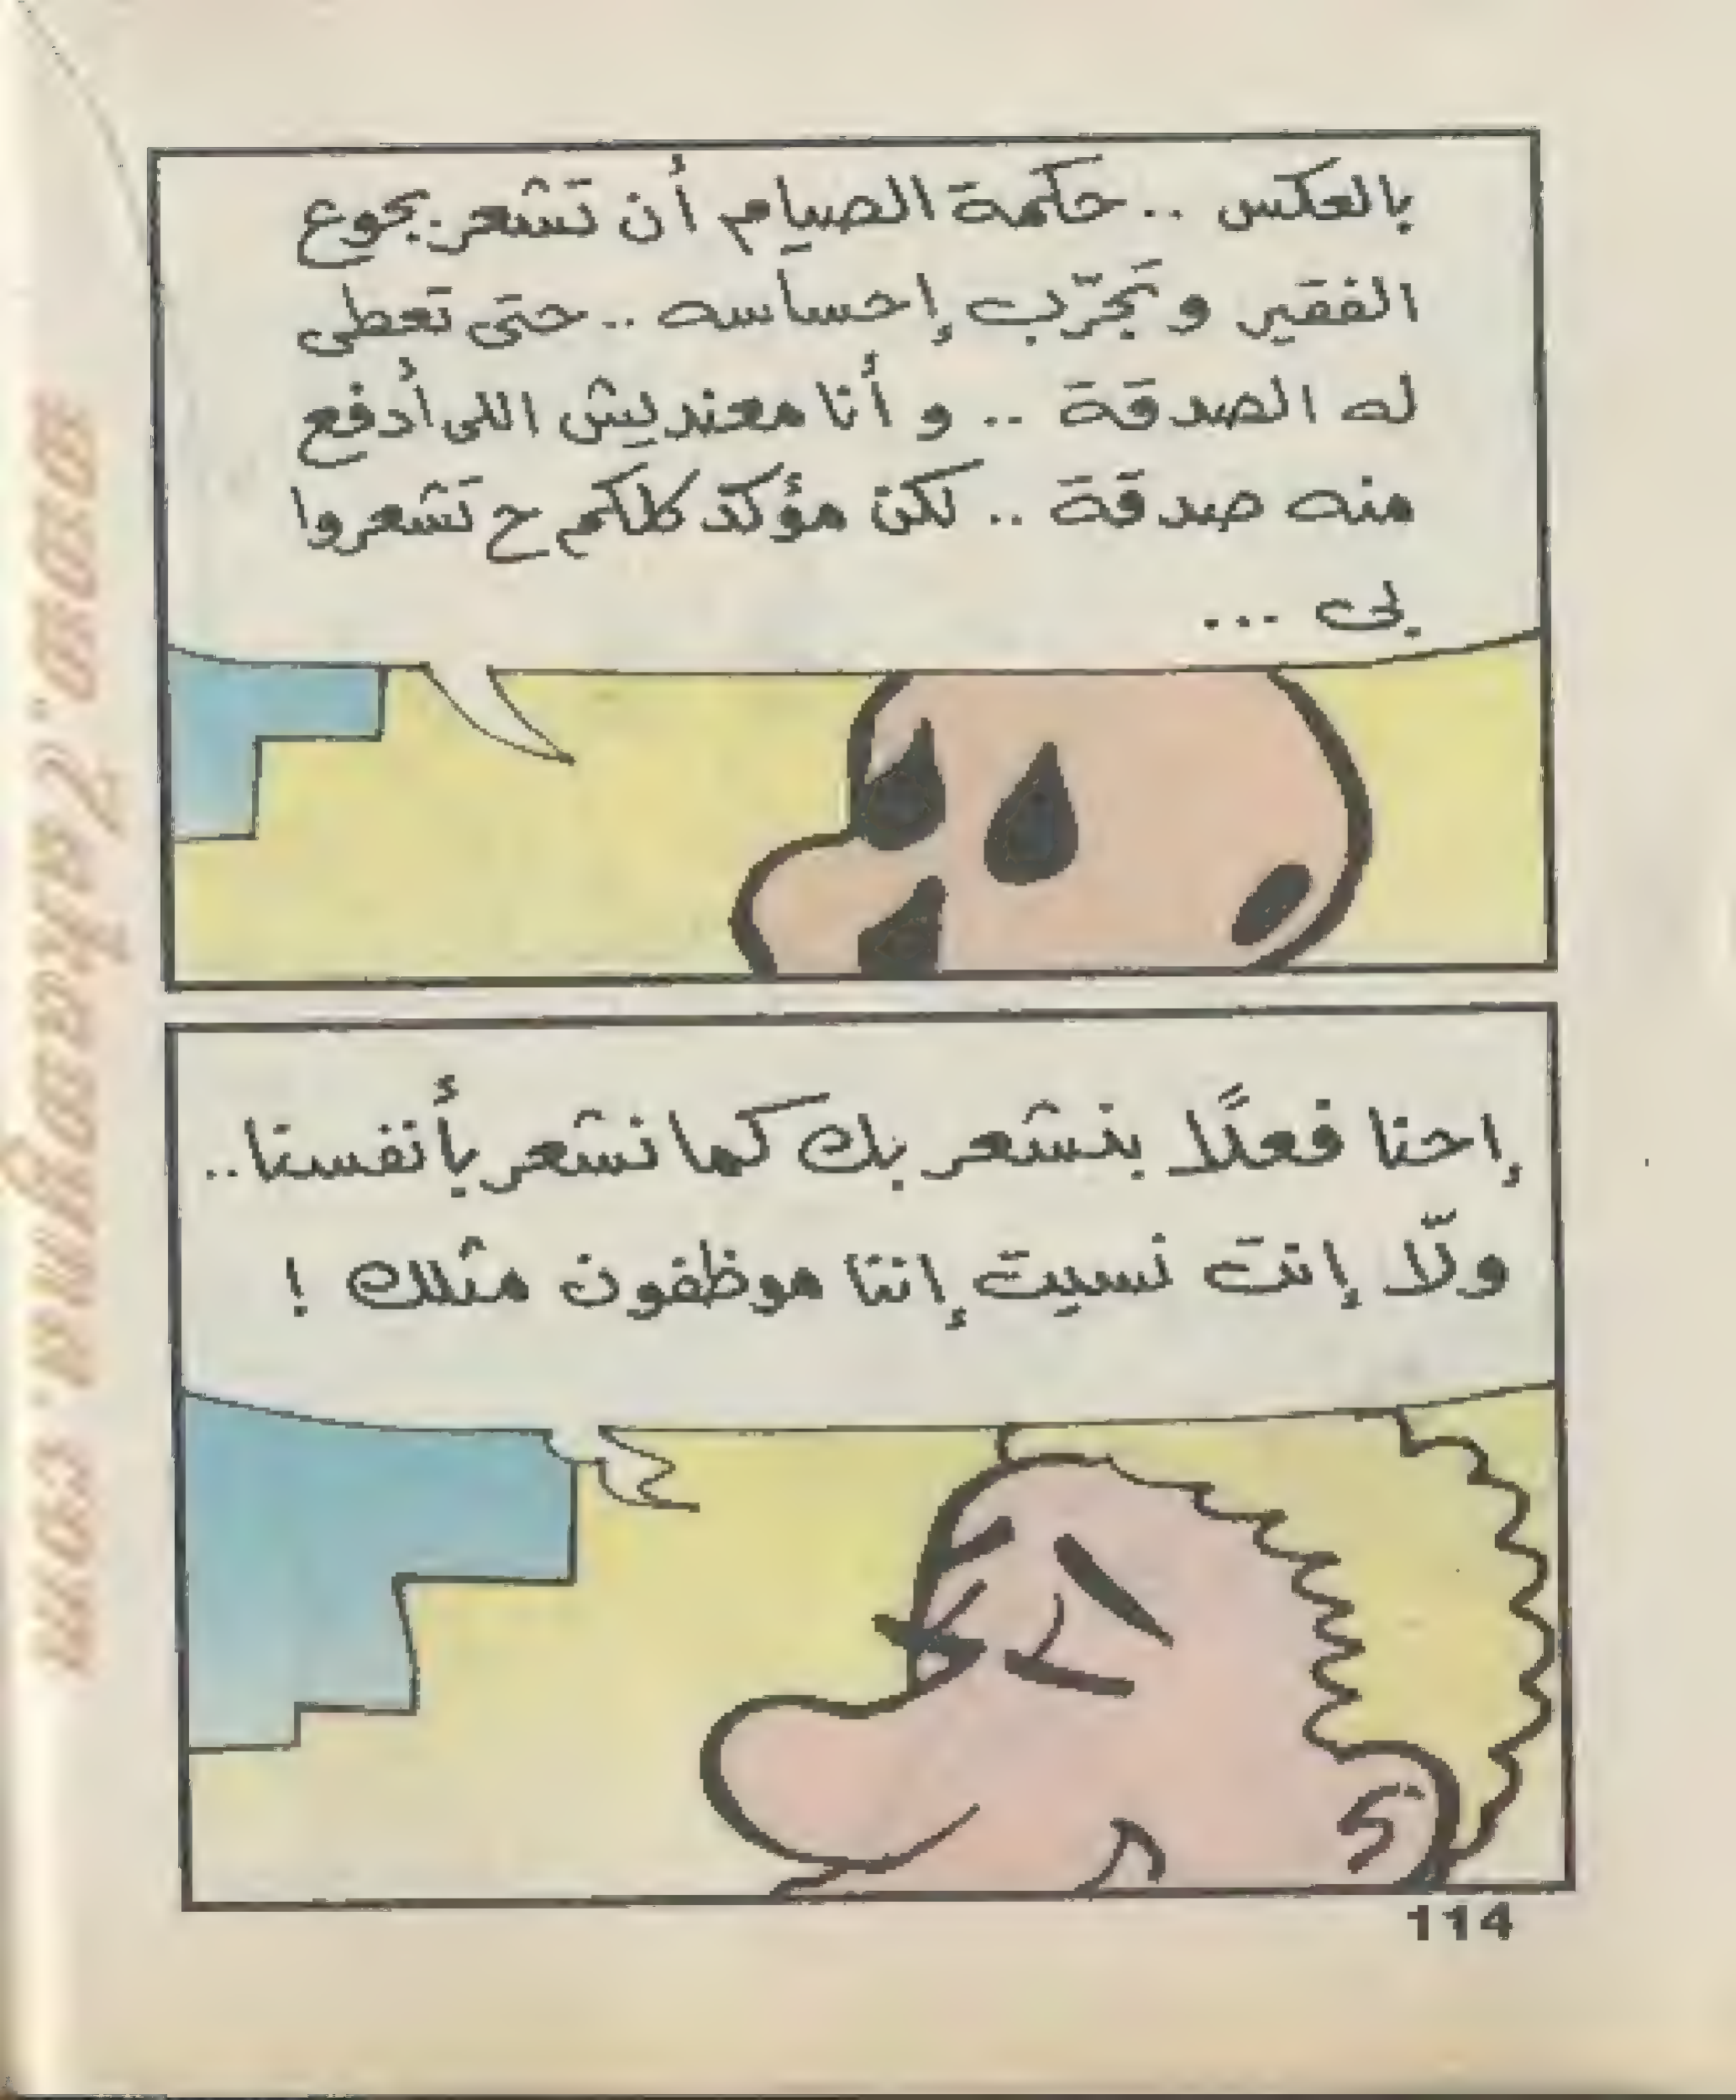 بالعكس .. حكمة الصيام أن تشعر بجوع
الفقير وتجرّب إحساسه .. حتى تعطى
له الصدقة .. وأنا معنديش اللى أدفع
منه صدقة .. لكن مؤكد كلكم ح تشعروا
بى ...
إحنا فعلًا بنشعر بك كما نشعر بأنفسنا ..
ولّا إنت نسيت إننا موظفون مثلك !
114